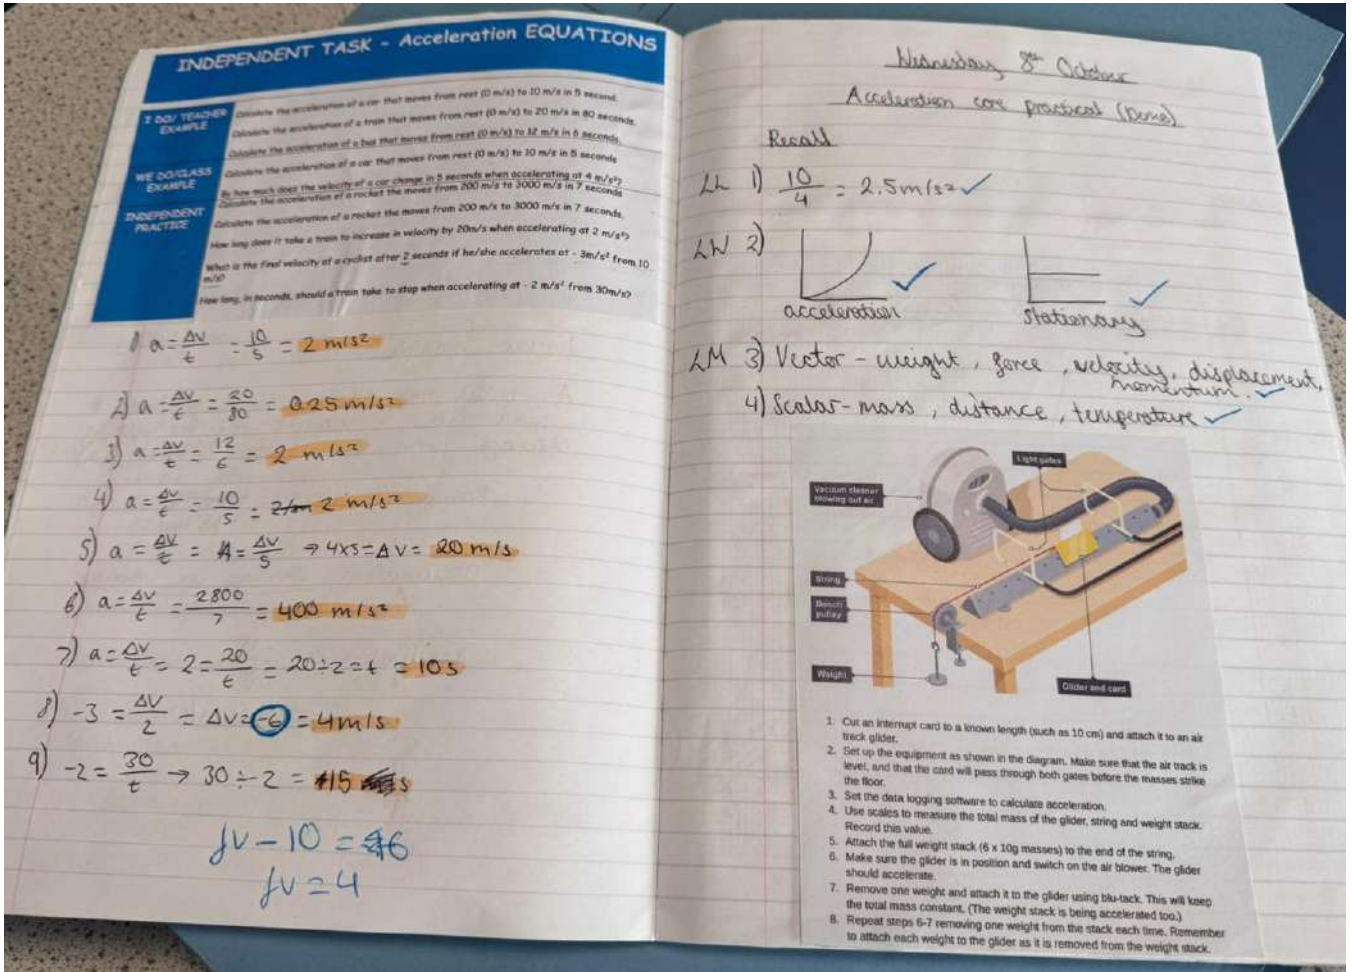 INDEPENDENT TASK - Acceleration EQUATIONS
I DO/ TEACHER EXAMPLE
Calculate the acceleration of a car that moves from rest (0 m/s) to 10 m/s in 5 second.
Calculate the acceleration of a train that moves from rest (0 m/s) to 20 m/s in 80 seconds.
Calculate the acceleration of a bus that moves from rest (0 m/s) to 12 m/s in 6 seconds.
WE DO/CLASS EXAMPLE
Calculate the acceleration of a car that moves from rest (0 m/s) to 10 m/s in 5 seconds
By how much does the velocity of a car change in 5 seconds when accelerating at 4 m/s²?
Calculate the acceleration of a rocket the moves from 200 m/s to 3000 m/s in 7 seconds
INDEPENDENT PRACTICE
Calculate the acceleration of a rocket the moves from 200 m/s to 3000 m/s in 7 seconds.
How long does it take a train to increase in velocity by 20m/s when accelerating at 2 m/s²?
What is the final velocity of a cyclist after 2 seconds if he/she accelerates at - 3m/s² from 10
m/s?
How long, in seconds, should a train take to stop when accelerating at - 2 m/s² from 30m/s?
1) a = ΔV/t = 10/5 = 2 m/s²
2) a = ΔV/t = 20/80 = 0.25 m/s²
3) a = ΔV/t = 12/6 = 2 m/s²
4) a = ΔV/t = 10/5 = 2 m/s²
5) a = ΔV/t = 4 = ΔV/5 → 4x5 = ΔV = 20 m/s
6) a = ΔV/t = 2800/7 = 400 m/s²
7) a = ΔV/t = 2 = 20/t = 20÷2 = t = 10s
8) -3 = ΔV/2 = ΔV = -6 = 4m/s
9) -2 = 30/t → 30 ÷ -2 = 15 s
fv - 10 = -6
fv = 4
Wednesday 8th October
Acceleration core practical (Demo)
Recall
LL 1) 10/4 = 2.5m/s² ✓
LW 2)
acceleration
stationary
LM 3) Vector - weight, force, velocity, displacement,
momentum. ✓
4) Scalar - mass, distance, temperature ✓
Light gates
Vacuum cleaner
blowing out air
String
Bench
pulley
Weight
Glider and card
1. Cut an interrupt card to a known length (such as 10 cm) and attach it to an air
track glider.
2. Set up the equipment as shown in the diagram. Make sure that the air track is
level, and that the card will pass through both gates before the masses strike
the floor.
3. Set the data logging software to calculate acceleration.
4. Use scales to measure the total mass of the glider, string and weight stack.
Record this value.
5. Attach the full weight stack (6 x 10g masses) to the end of the string.
6. Make sure the glider is in position and switch on the air blower. The glider
should accelerate.
7. Remove one weight and attach it to the glider using blu-tack. This will keep
the total mass constant. (The weight stack is being accelerated too.)
8. Repeat steps 6-7 removing one weight from the stack each time. Remember
to attach each weight to the glider as it is removed from the weight stack.